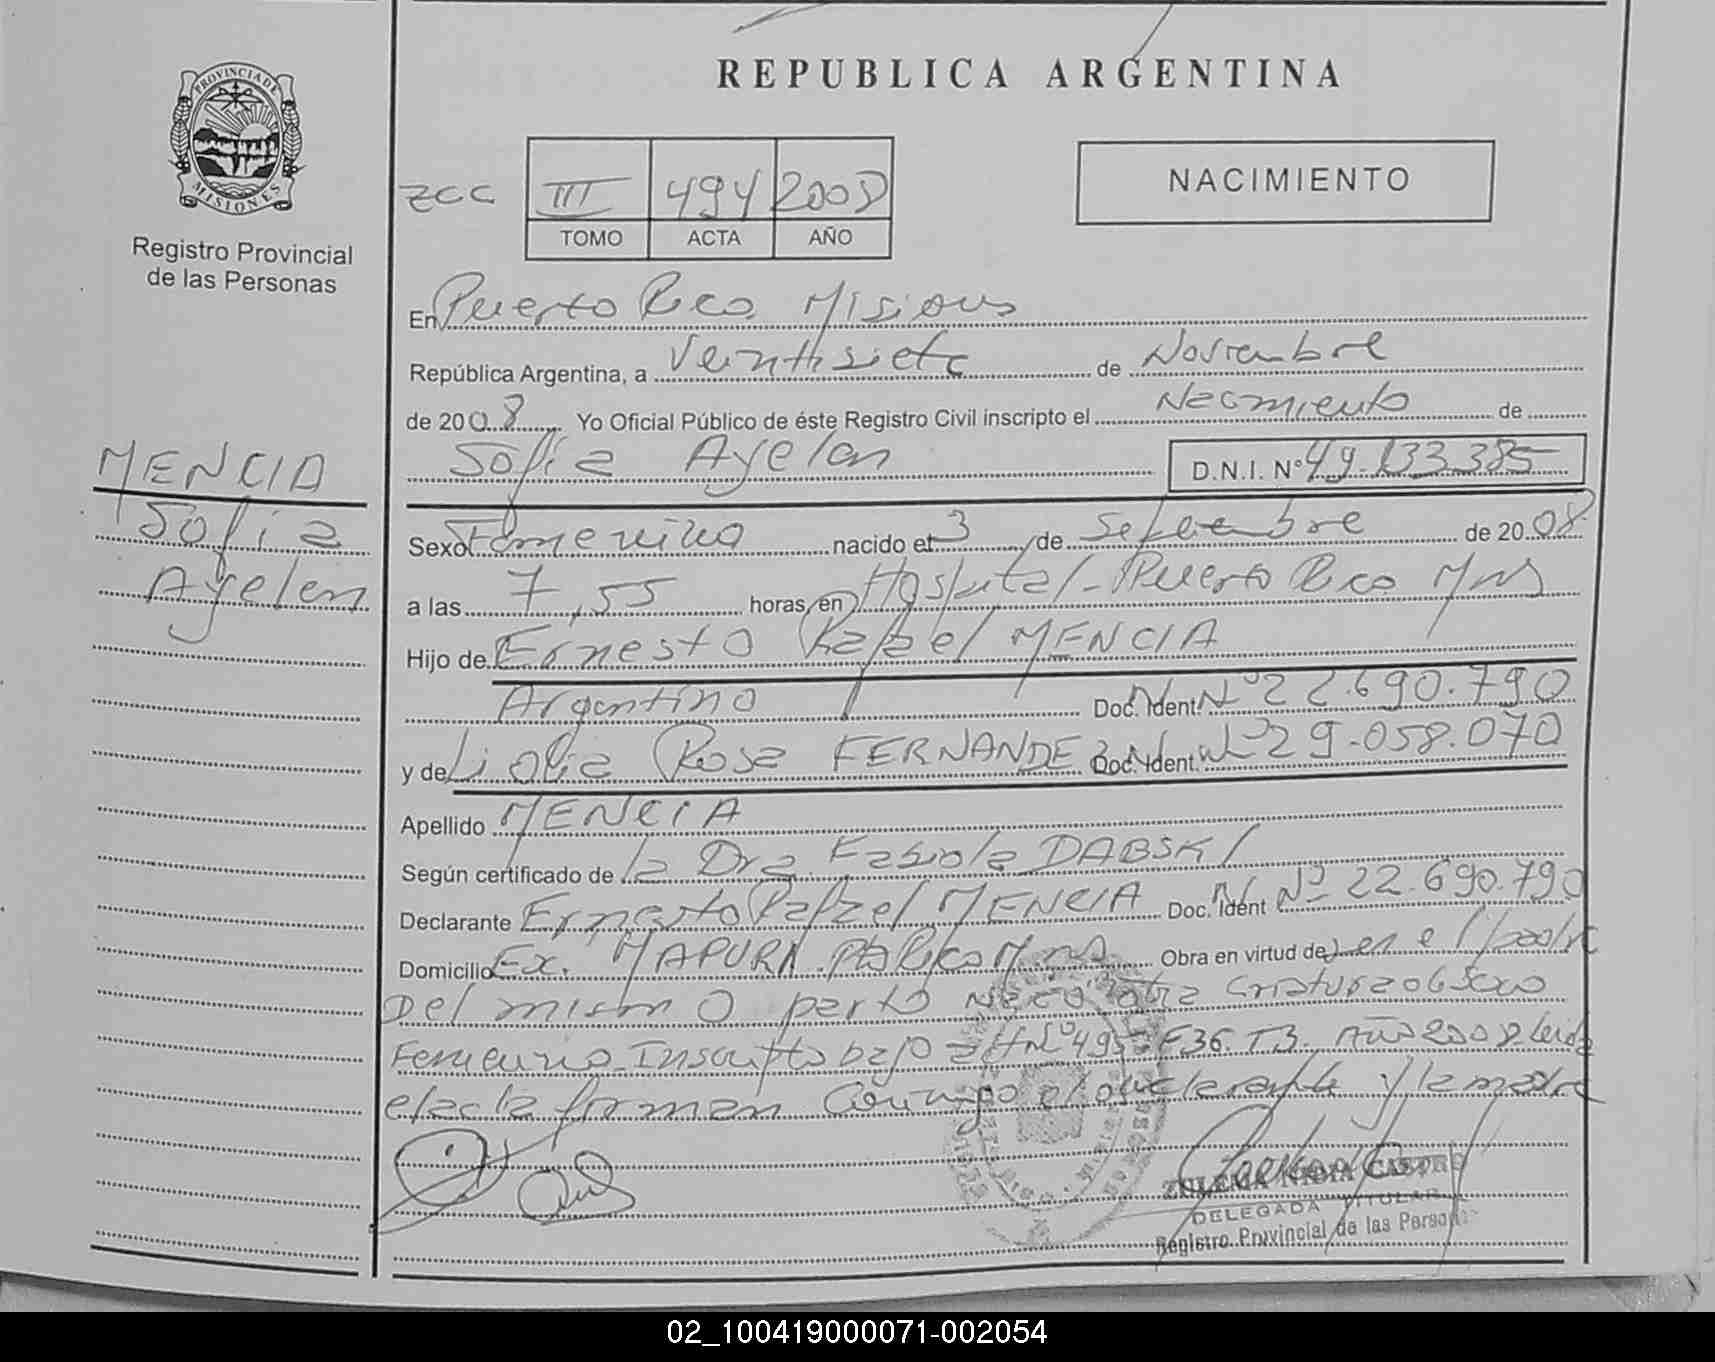 PROVINCIA DE
MISIONES
Registro Provincial
de las Personas
REPUBLICA ARGENTINA
ZCC III 494 2008
TOMO ACTA AÑO
NACIMIENTO
En Puerto Rico Misiones
República Argentina, a Veintisiete de Noviembre
de 2008 Yo Oficial Público de éste Registro Civil inscripto el Nacimiento de
Sofia Ayelen D.N.I. Nº 49.133.385
MENCIA
Sofia
Ayelen
Sexo Femenino nacido el 3 de Setiembre de 2008
a las 7,55 horas, en Hospital - Puerto Rico Mns
Hijo de Ernesto Rafael MENCIA
Argentino Doc. Ident. Nº 22.690.790
y de Rosa FERNANDEZ Doc. Ident. Nº 29.058.070
Apellido MENCIA
Según certificado de la Dra. Fabiola DABSKI
Declarante Ernesto Rafael MENCIA Doc. Ident Nº 22.690.790
Domicilio Ex. Mns Obra en virtud de) en el
Del mismo parto nació otra criatura de sexo
Femenino Inscripto bajo Nº 495 F36. T3. Año 2008 Leida
el acta forman conmigo el declarante y la madre
ZULEMA NIDIA CASTRO
DELEGADA TITULAR
Registro Provincial de las Personas
02_100419000071-002054